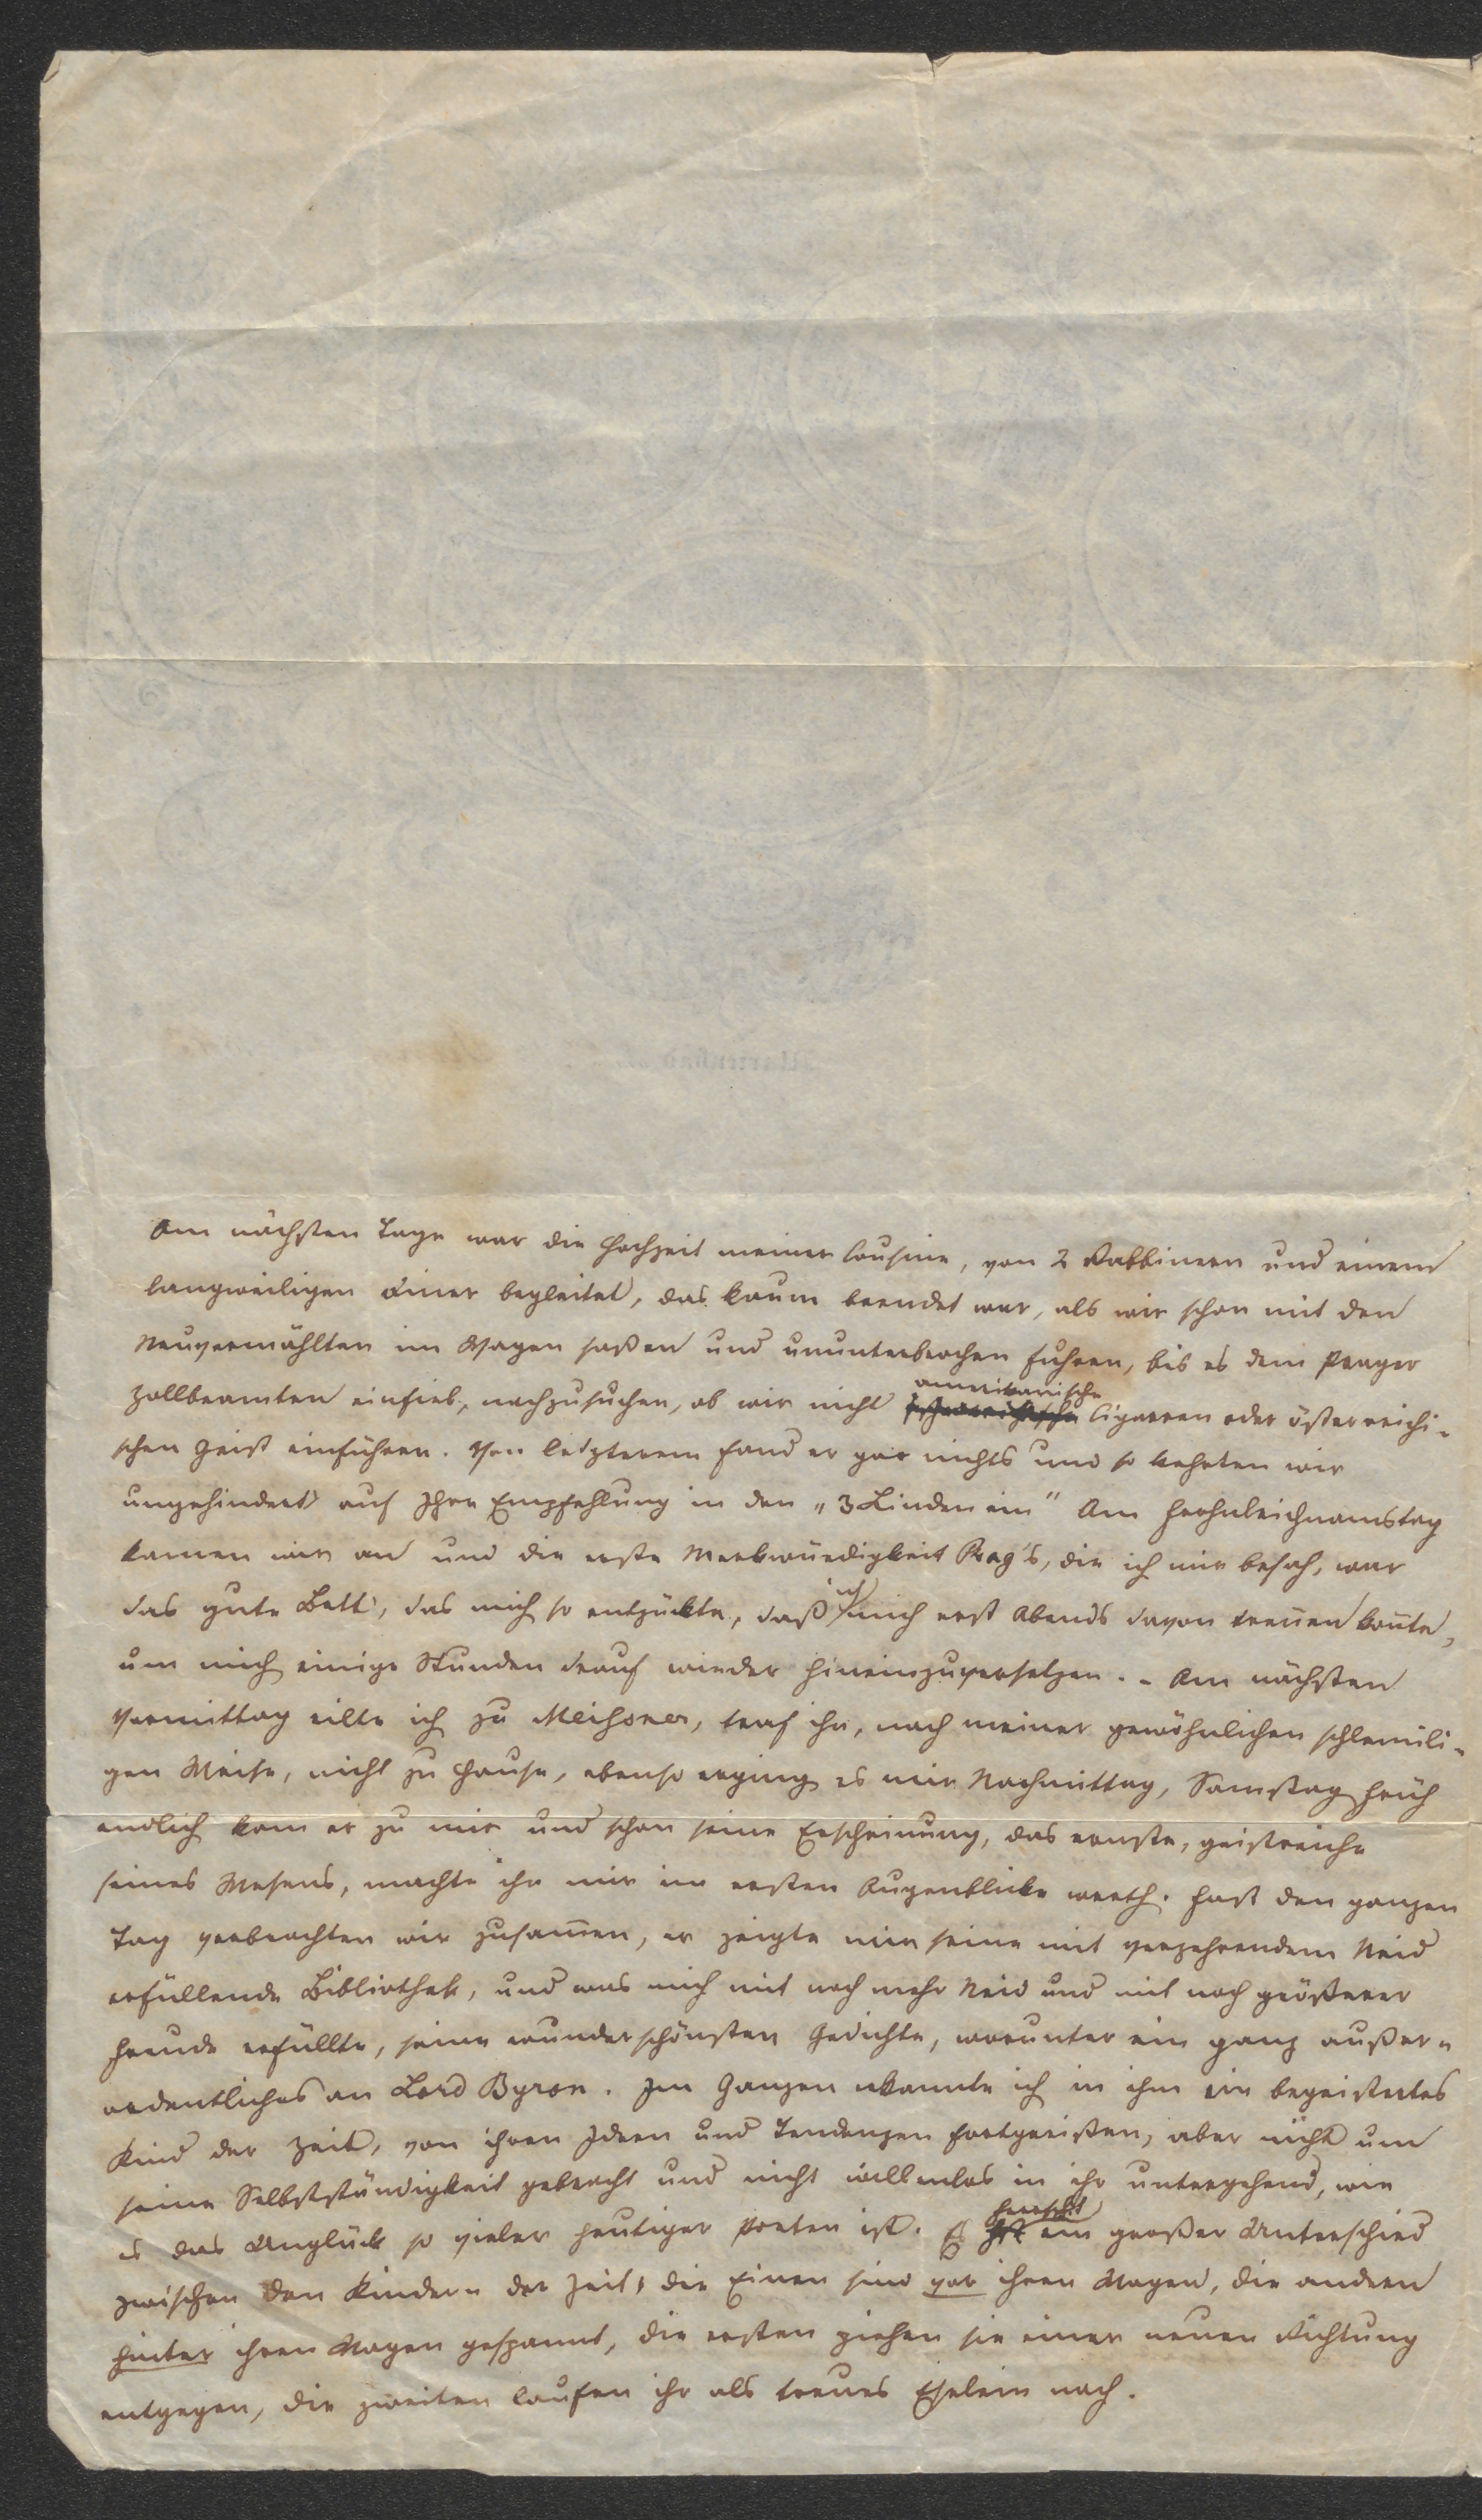 Am nächsten Tage war die Hochzeit meiner Cousine, von 2 Rabbinern und einem
langweiligen Diner begleitet, das kaum beendet war, als wir schon mit den
Neuvermählten im Wagen saßen und ununterbrochen fuhren, bis es dem Prager
Zollbeamten einfiel, nachzusuchen, ob wir nicht amerikanische Cigarren oder österreichi-
schen Geist einführen. Von letzterem fand er gar nichts und so kehrten wir
ungehindert auf Ihre Empfehlung in den „3 Linden ein" Am Frohnleichnamstag
kamen wir an und die erste Merkwürdigkeit Prag's, die ich mir besah, war
das gute Bett, das mich so entzückte, daß ich mich erst Abends davon treñen koñte,
um mich einige Stunden drauf wieder hineinzuversetzen. - Am nächsten
Vormittag eilte ich zu Meißner, traf ihn, nach meiner gewöhnlichen schlemili-
gen Weise, nicht zu Hause, ebenso erging es mir Nachmittag, Samstag früh
endlich kam er zu mir und schon seine Erscheinung, das ernste, geistreiche
seines Wesens, machte ihn mir im ersten Augenblicke werth. Fast den ganzen
Tag verbrachten wir zusam̄en, er zeigte mir seine mit verzehrendem Neid
erfüllende Bibliothek, und was mich mit noch mehr Neid und mit noch größerer
Freude erfüllte, seine wunderschönsten Gedichte, worunter ein ganz außer-
ordentliches an Lord Byron. Im Ganzen erkannte ich in ihm ein begeistertes
Kind der Zeit, von ihren Ideen und Tendenzen fortgerißen, aber nicht um
seine Selbstständigkeit gebracht und nicht willenlos in ihr untergehend, wie
es das Unglück so vieler heutiger Poeten ist. Es herrscht ein großer Unterschied
zwischen den Kindern der Zeit, die Einen sind vor ihren Wagen, die andern
hinter ihren Wagen gespannt, die ersten ziehen sie einer neuen Richtung
entgegen, die zweiten laufen ihr als treues Eselein nach.